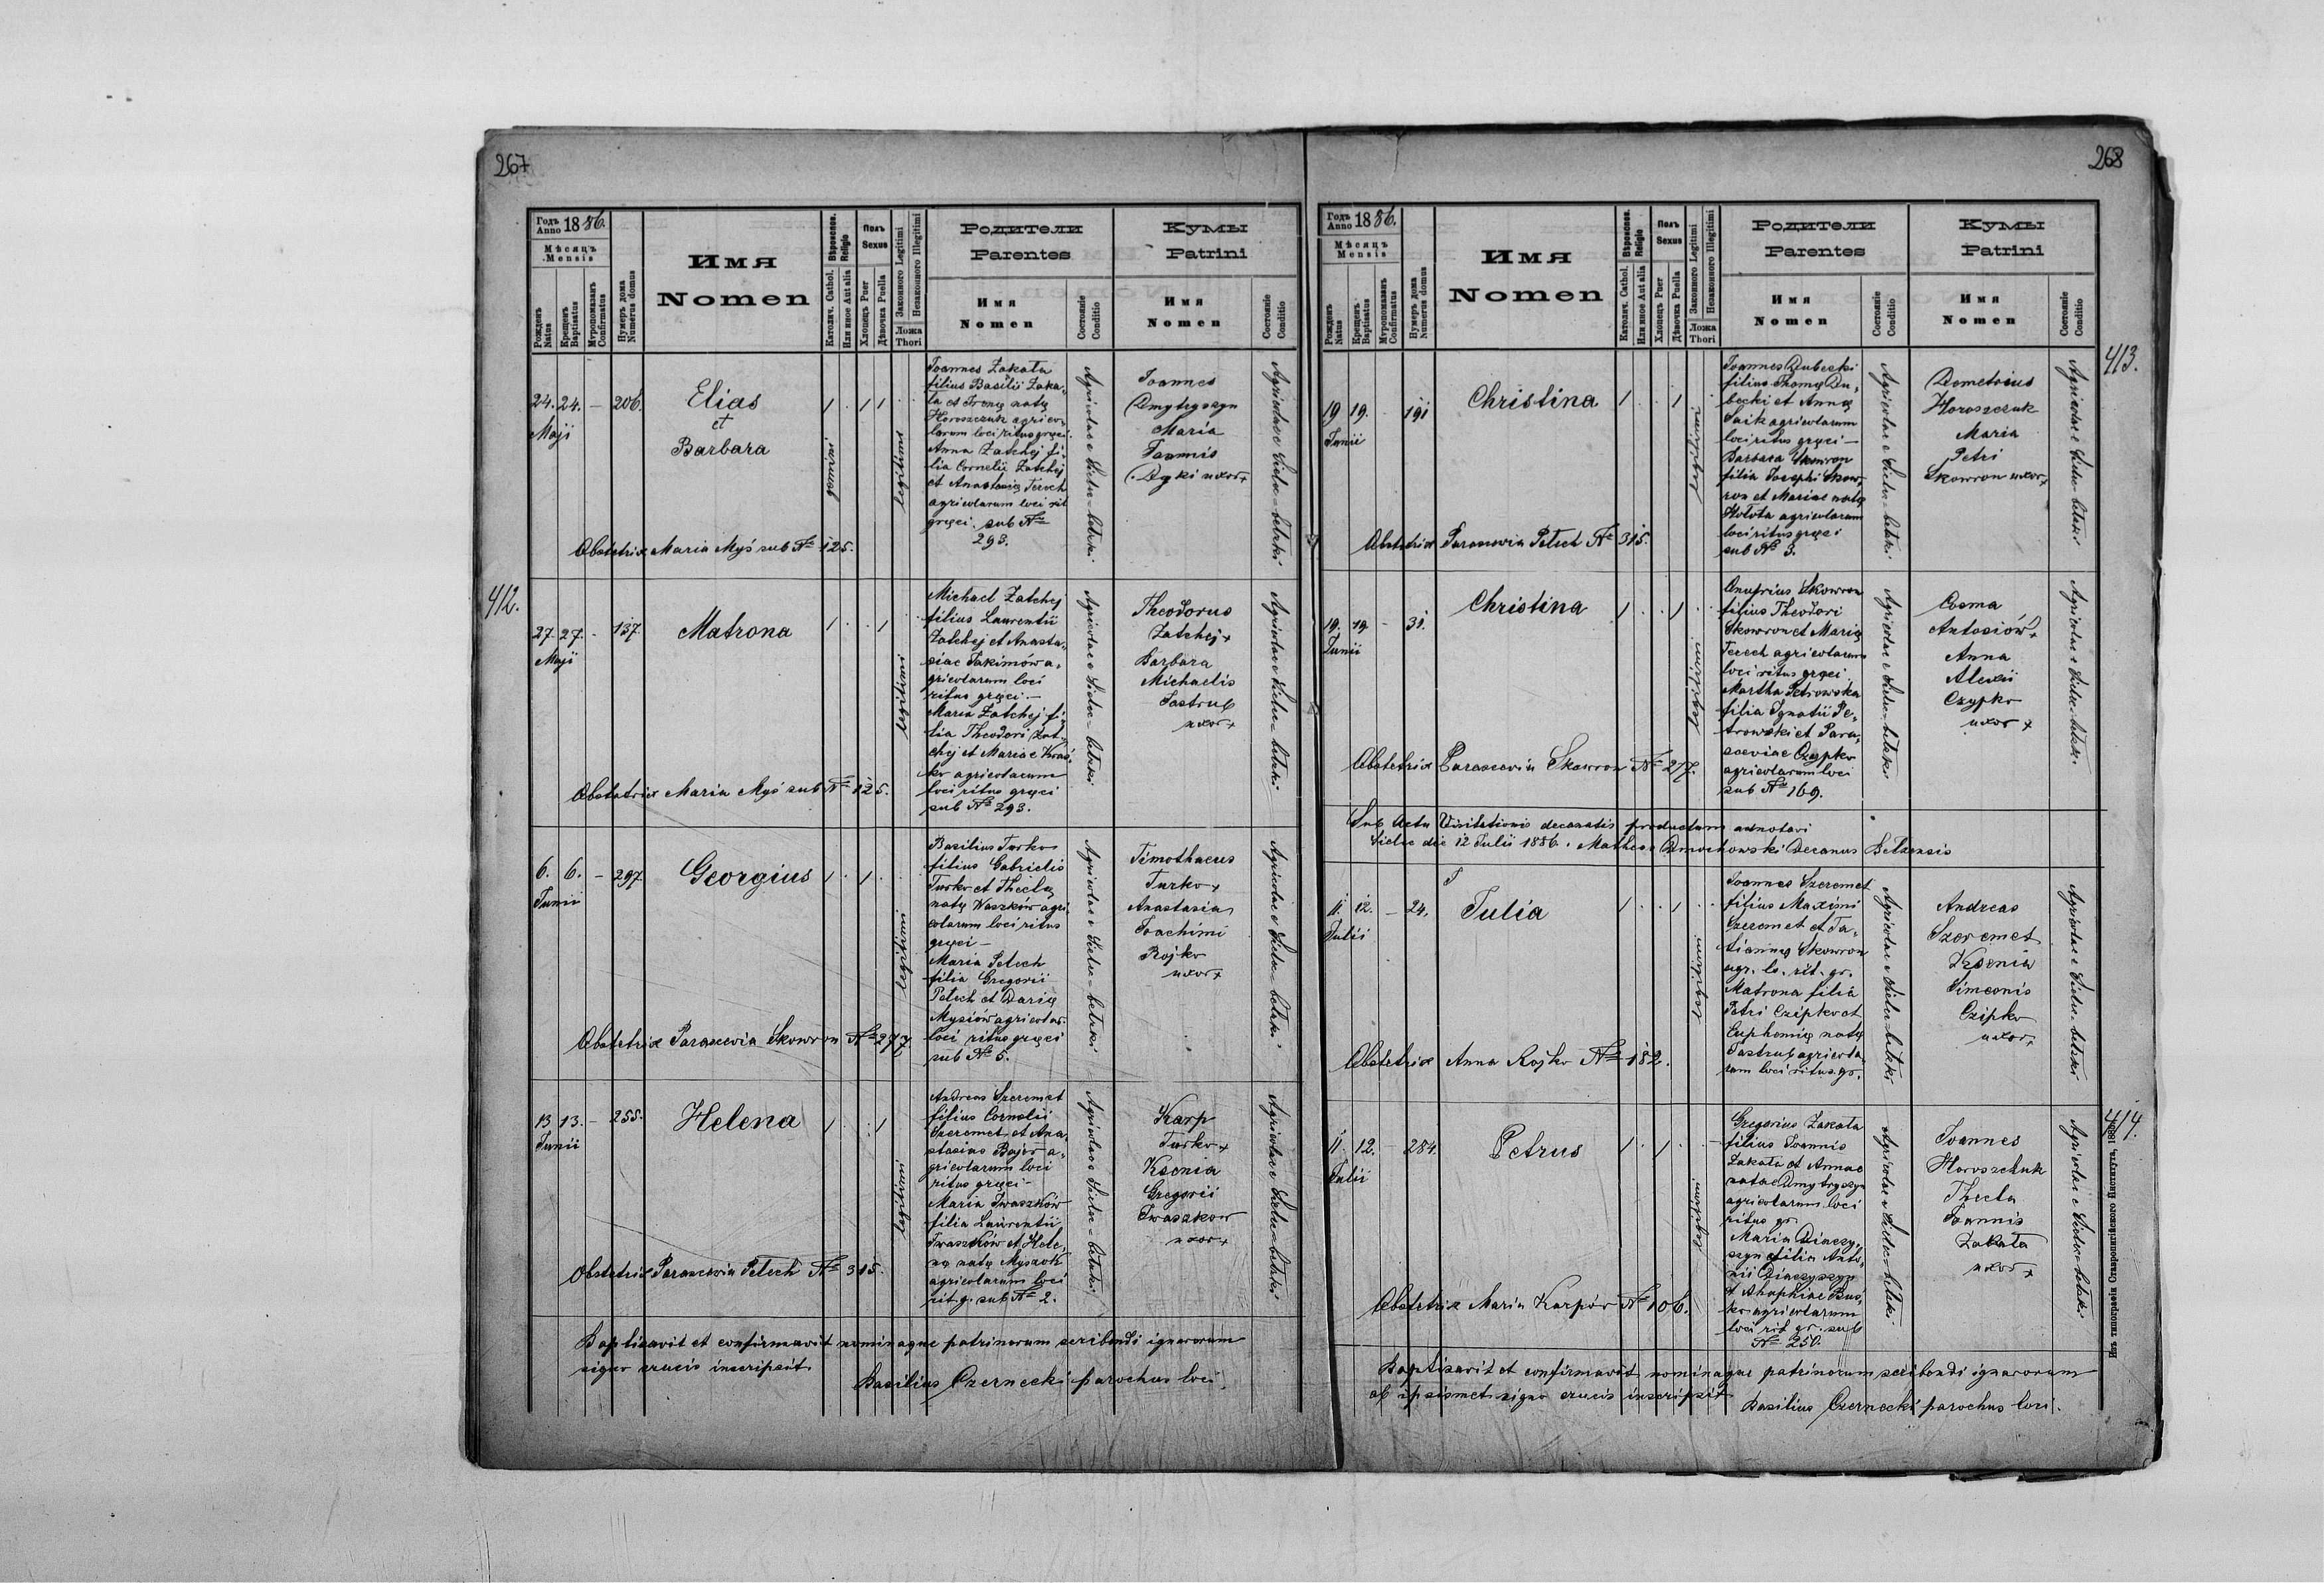 267
Годъ Anno 1886.
Мѣсяцъ
Mensis
Рожденъ Natus
Крещенъ Baptisatus
Мѵропомазанъ Confirmatus
Нумеръ дома Numerus domus
Имя
Nomen
Вѣроиспов. Religio
Католич. Cathol.
Или иное Aut alia
Полъ
Sexus
Хлопецъ Puer
Дѣвочка Puella
Законного Legitimi
Незаконного Illegitimi
Ложа
Thori
Родители
Parentes
Имя
Nomen
Состояніе
Conditio
Кумы
Patrini
Имя
Nomen
Состояніе
Conditio
24. 24. – 206.
Maji
Elias
et
Barbara
1 . 1 1
gemini
legitimi
Joannes Zakała
filius Basilii Zaka-
ła et Irenę natę
Horoszczuk agrico-
larum loci ritus gręci.
Anna Zatchej fi-
lia Cornelii Zatchej
et Anastasię Terech
agricolarum loci rit
gręci. sub No
293.
Agricolae e Sielec-bełzki
Joannes
Dmytryszyn
Maria
Joannis
Dyki uxor+
Agricolae e Sielec-bełzki
Obstetrix Maria Myś sub No 125.
412.
27. 27. - 137.
Maji
Matrona
1 . . 1
legitimi
Michael Zatchej
filius Laurentii
Zatchej et Anasta-
siae Jakimów a-
gricolarum loci
ritus gręci.—
Maria Zatchej fi-
lia Theodori Zat-
chej et Mariae Kraś-
ko agricolarum
loci ritus gręci
sub No 293.
Agricolae e Sielec-bełzki
Theodorus
Zatchej+
Barbara
Michaelis
Jastrub
uxor+
Agricolae e Sielec-bełzki
Obstetrix Maria Myś sub No 125.
6. 6. – 297.
Junii
Georgius
1 . 1 .
legitimi
Basilius Turko
filius Gabrielis
Turko et Theclę
natę Waszków agri-
colarum loci ritus
gręci —
Maria Petech
filia Gregorii
Petech et Darię
Mysiów agricolar.
loci ritus gręci
sub No 5.
Agricolae e Sielec-bełzki
Timothaeus
Turko+
Anastasia
Joachimi
Rojko
uxor+
Agricolae e Sielec-bełzki
Obstetrix Parascevia Skowron No 277.
13 13. – 255.
Junii
Helena
1 . . 1
legitimi
Andreas Szeremet
filius Cornelii
Szeremet et Ana-
stasiae Bajor a-
gricolarum loci
ritus gręci —
Maria Iwaszków
filia Laurentii
Iwaszków et Hele-
nę natę Myszok
agricolarum loci
rit. g. sub No 2.
Agricolae e Sielec-bełzki
Karp
Turko+
Ksenia
Gregorii
Iwaszkow
uxor+
Agricolae e Sielec-bełzki
Obstetrix Parascevia Petech No 315.
Baptisavit et confirmavit nominaque patrinorum scribendi ignarorum
signo crucis inscripsit.
Basilius Czernecki parochus loci.
268
Годъ Anno 1886.
Мѣсяцъ
Mensis
Рожденъ Natus
Крещенъ Baptisatus
Мѵропомазанъ Confirmatus
Нумеръ дома Numerus domus
Имя
Nomen
Вѣроиспов. Religio
Католич. Cathol.
Или иное Aut alia
Полъ
Sexus
Хлопецъ Puer
Дѣвочка Puella
Законного Legitimi
Незаконного Illegitimi
Ложа
Thori
Родители
Parentes
Имя
Nomen
Состояніе
Conditio
Кумы
Patrini
Имя
Nomen
Состояніе
Conditio
413.
19 19. 191
Junii
Christina
1 . . 1
legitimi
Joannes Dubecki
filius Thomę Du-
becki et Annę
Saik agricolarum
loci ritus gręci —
Barbara Skowron
filia Josephi Skow-
ron et Mariae natę
Hołota agricolarum
loci ritus gręci
sub No 3.
Agricolae e Sielec-bełzki
Demetrius
Horoszczuk
Maria
Petri
Skowron uxor+
Agricolae e Sielec-bełzki
Obstetrix Parascevia Petech No 315.
19. 19 – 31.
Junii
Christina
1 . . 1
legitimi
Onufrius Skowron
filius Theodori
Skowron et Marię
Terech agricolarum
loci ritus gręci
Martha Petrowska
filia Ignatii Pe-
trowski et Para-
sceviae Czypko
agricolarum loci
sub No 169.
Agricolae e Sielec-bełzki
Cosma
Antosiów+
Anna
Alexii
Czypko
uxor+
Agricolae e Sielec-bełzki
Obstetrix Parascevia Skowron No 277.
Sub Actu Visitationis decanalis productum adnotavi
Sielec die 12 Julii 1886. Matheus Dmochowski Decanus Belzensis
11. 12. – 24.
Julii
Julia
1 . . 1
legitimi
Joannes Szeremet
filius Maximi
Szeremet et Ta-
tiannę Skowron
agr. lo. rit. gr.
Matrona filia
Petri Czipko et
Euphemię natę
Jastrub agricola-
rum loci ritus gr.
Agricolae e Sielec-bełzki
Andreas
Szeremet
Ksenia
Simeonis
Czipko
uxor+
Agricolae e Sielec-bełzki
Obstetrix Anna Rojko No 182.
414.
11. 12. – 284.
Julii
Petrus
1 . 1 .
legitimi
Gregorius Zakała
filius Joannis
Zakała et Annae
natae Dmytryszyn
agricolarum loci
ritus gr.
Maria Dinczy-
szyn filia Anto-
nii Dinczyszyn
et Ahaphiae Buś-
ko agricolarum
loci rit gr. sub
No 250.
Agricolae e Sielec-bełzki
Joannes
Horoszczuk
Thecla
Joannis
Zakała
uxor+
Agricolae e Sielec-bełzki
Obstetrix Maria Karpów No 106.
Baptisavit et confirmavit nominaque patrinorum scribendi ignarorum
ab ipsismet signo crucis inscripsit
Basilius Czernecki parochus loci.
Изъ типографіи Ставропигійского Института,